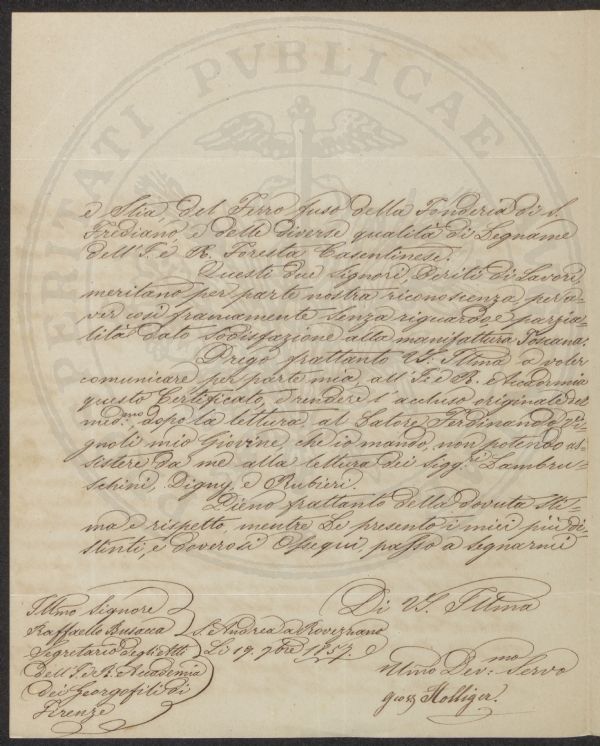 è Stia, del Ferro fuso della Fonderia di S.
Frediano, e delle diverse qualità di Legname
dell'I. e R. Foresta Casentinese.
Questi due Signori Periti di Lavori,
meritano per parte nostra riconoscienza per a-
ver così francamente senza riguardo e parzia-
lità dato sodisfazione alla manifattura Toscana.
Prego frattanto V.S. Illma a voler
comunicare per parte mia all'I. e R. Accademia
questo Certificato, e rendere l'accluso originale del
medmo dopo la lettura, al Latore Ferdinando
mio Giovine, che io mando, non potendo as-
sistere da me alla lettura dei Sigg.i Lambru-
schini, Digny, e Rubieri.
Pieno frattanto della dovuta Sti-
ma e rispetto mentre Le presento i miei più di-
stinti, e doverosi Ossequi, passo a segnarmi
Di V.S. Illma
Illmo Signore
Raffaello Busacca
Segretario degli Atti
dell'I. e R. Accademia
dei Georgofili di
Firenze
S. Andrea a Rovezzano
Li 19. 7bre 1857.
Umo Dev:mo Servo
Holliger.
PERITATI PVBLICAE